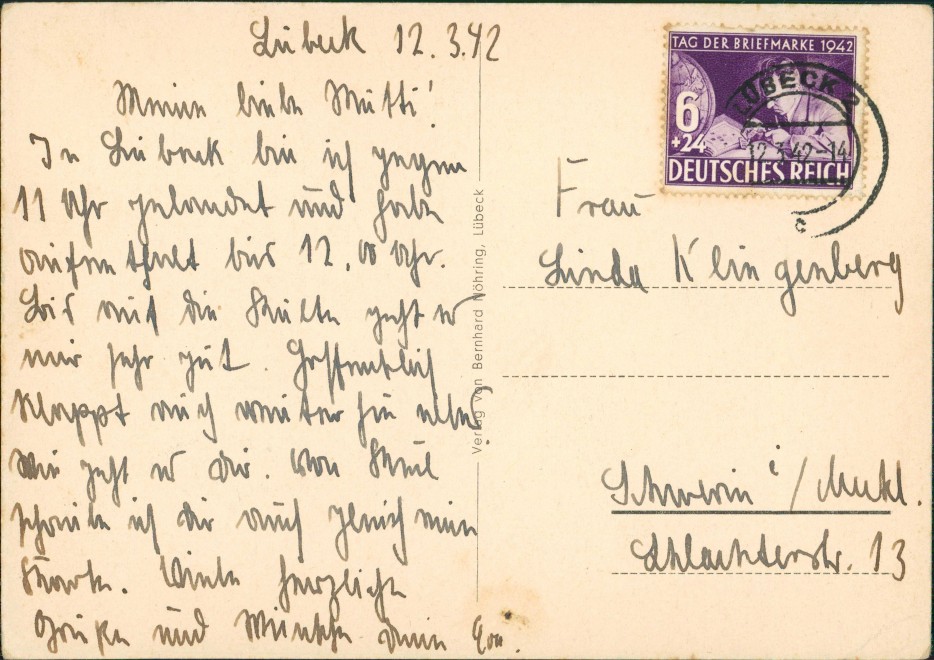 Lübeck 12.3.42
Meine liebe Mutti!
In Lübeck bin ich gegen
11 Uhr gelandet und habe
Aufenthalt bis 12.00 Uhr.
Bis auf die Kälte geht es
mir sehr gut. Hoffentlich
klappt auch weiterhin alles.
Wie geht es dir. Von Kiel
schreibe ich dir auch gleich eine
Karte. Viele herzliche
Grüße und Wünsche dein
TAG DER BRIEFMARKE 1942
6
+24
DEUTSCHES REICH
LÜBECK 2
12.3.42-14
c
Frau
Linda Klingenberg
Schwerin i/Meckl.
Schlachterstr. 13
Verlag von Bernhard Nöhring, Lübeck